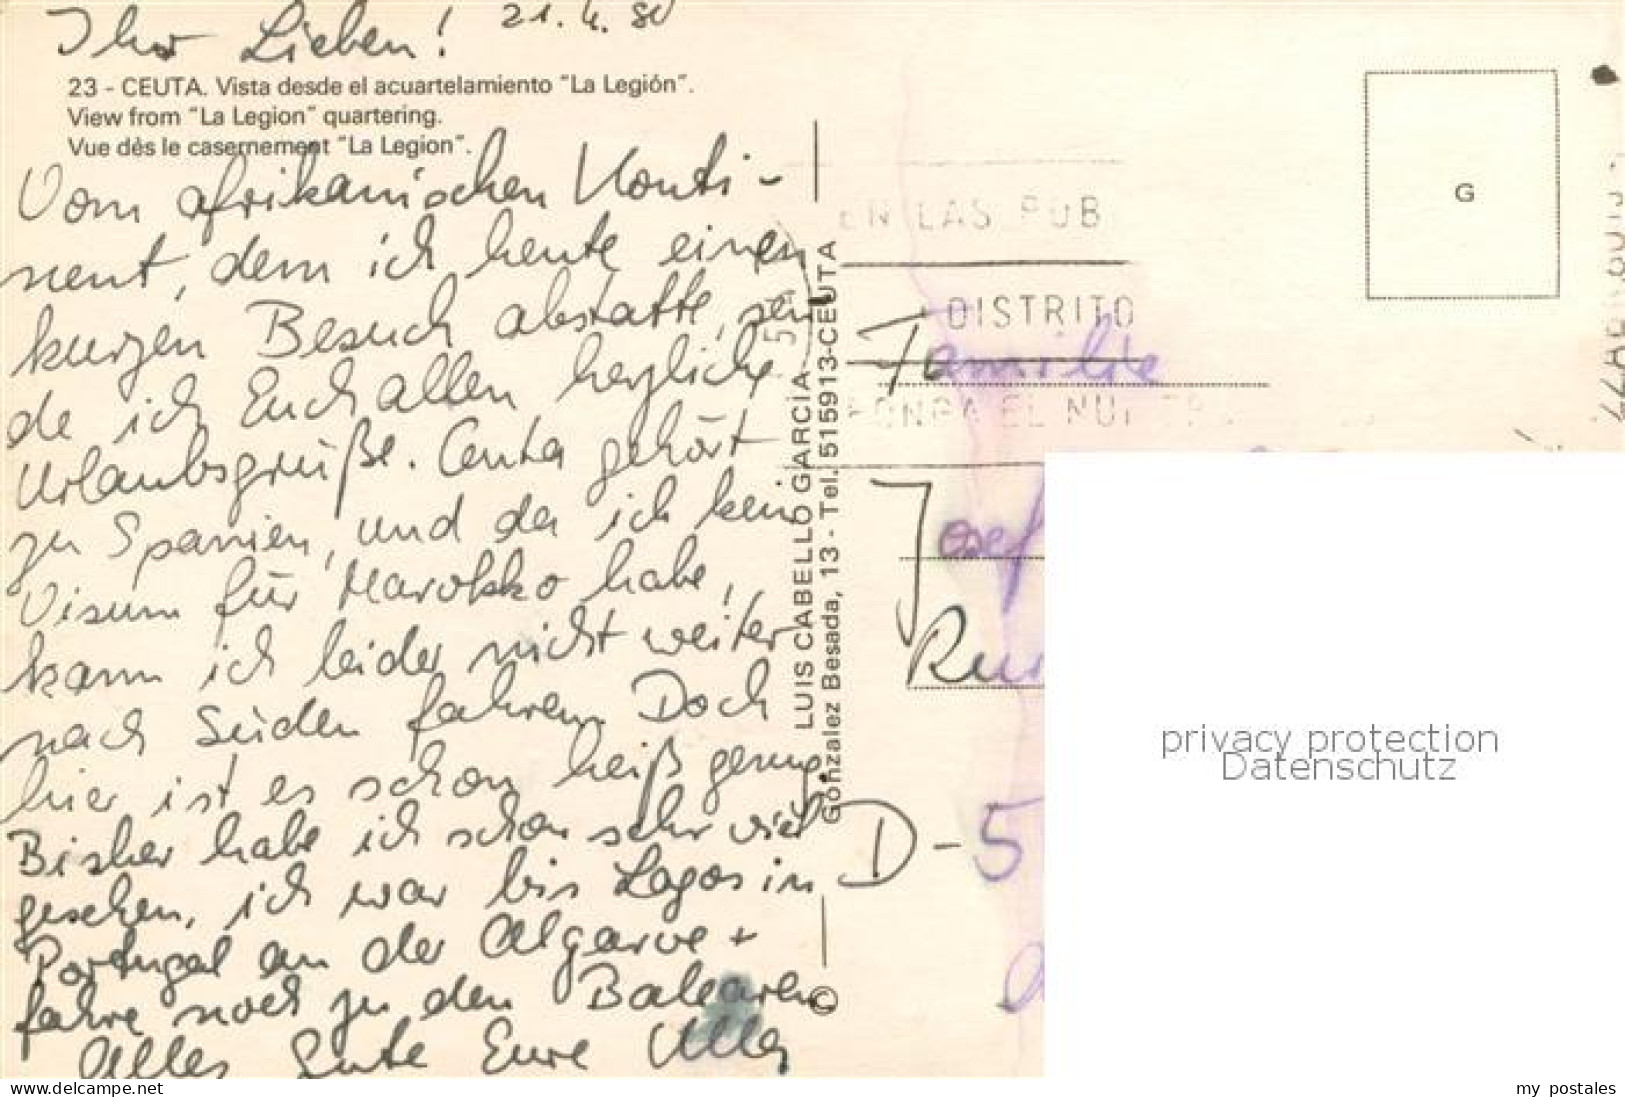 21.4.80
Ihr Lieben!
23 - CEUTA. Vista desde el acuartelamiento "La Legión".
View from "La Legion" quartering.
Vue dès le casernement "La Legion".
Vom afrikanischen Konti-
nent, dem ich heute einen
kurzen Besuch abstatte, sen
de ich Euch allen herzliche
Urlaubsgrüße. Ceuta gehört
zu Spanien, und da ich kein
Visum für Marokko habe,
kann ich leider nicht weiter
nach Süden fahren. Doch
hier ist es schon heiß genug
Bisher habe ich schon sehr viel
gesehen, ich war bis Lagos in
Portugal an der Algarve +
fahre noch zu den Balearen
Alles Gute Eure Ulla
LUIS CABELLO GARCIA
González Besada, 13 - Tel. 515913-CEUTA
©
G
EN LAS PUB
DISTRITO
PONGA EL
Familie
Josef
D-5
privacy protection
Datenschutz
www.delcampe.net
my_postales